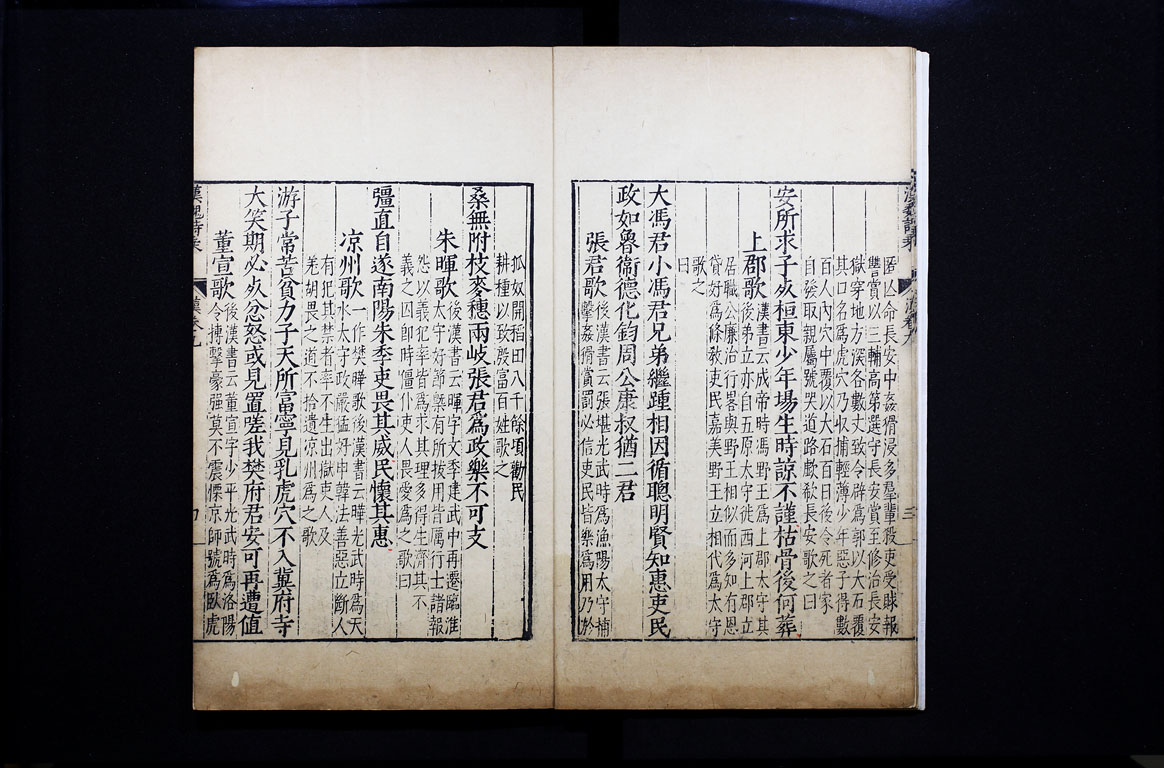 匿亾命長安中姦猾浸多羣輩殺吏受賕報
讐賞以三輔高第選守長安賞至修治長安
獄穿地方深各數丈致令辟爲郭以大石覆
其口名爲虎穴乃收捕輕薄少年惡子得數
百人內穴中覆以大石百日後令死者家
自發取親屬號哭道路歔欷長安歌之曰
安所求子𣦸桓東少年場生時諒不謹枯骨後何葬
上郡歌
漢書云成帝時馮野王爲上郡太守其
後弟立亦自五原太守徙西河上郡立
居職公廉治行畧與野王相似而多知有恩
貸好爲條教吏民嘉美野王立相代爲太守
歌之
曰
大馮君小馮君兄弟繼踵相因循聰明賢知惠吏民
政如魯衞德化鈞周公康叔猶二君
張君歌
後漢書云張堪光武時爲漁陽太守捕
擊姦猾賞罰必信吏民皆樂爲用乃於
狐奴開稻田八千餘頃勸民
耕種以致殷富百姓歌之
桑無附枝麥穗兩岐張君爲政樂不可支
朱暉歌
後漢書云暉字文季建武中再遷臨淮
太守好節槩有所拔用皆厲行士諸報
怨以義犯率皆爲求其理多得生濟其不
義之囚卽時僵仆吏人畏愛爲之歌曰
彊直自遂南陽朱季吏畏其威民懷其惠
凉州歌
一作樊曄歌後漢書云曄光武時爲天
水太守政嚴猛好申韓法善惡立斷人
有犯其禁者率不生出獄吏人及
羌胡畏之道不拾遺凉州爲之歌
游子常苦貧力子天所富寧見乳虎穴不入冀府寺
大笑期必𣦸忿怒或見置嗟我樊府君安可再遭值
董宣歌
後漢書云董宣字少平光武時爲洛陽
令搏擊豪强莫不震慄京師號爲臥虎
漢魏詩乘
漢卷九